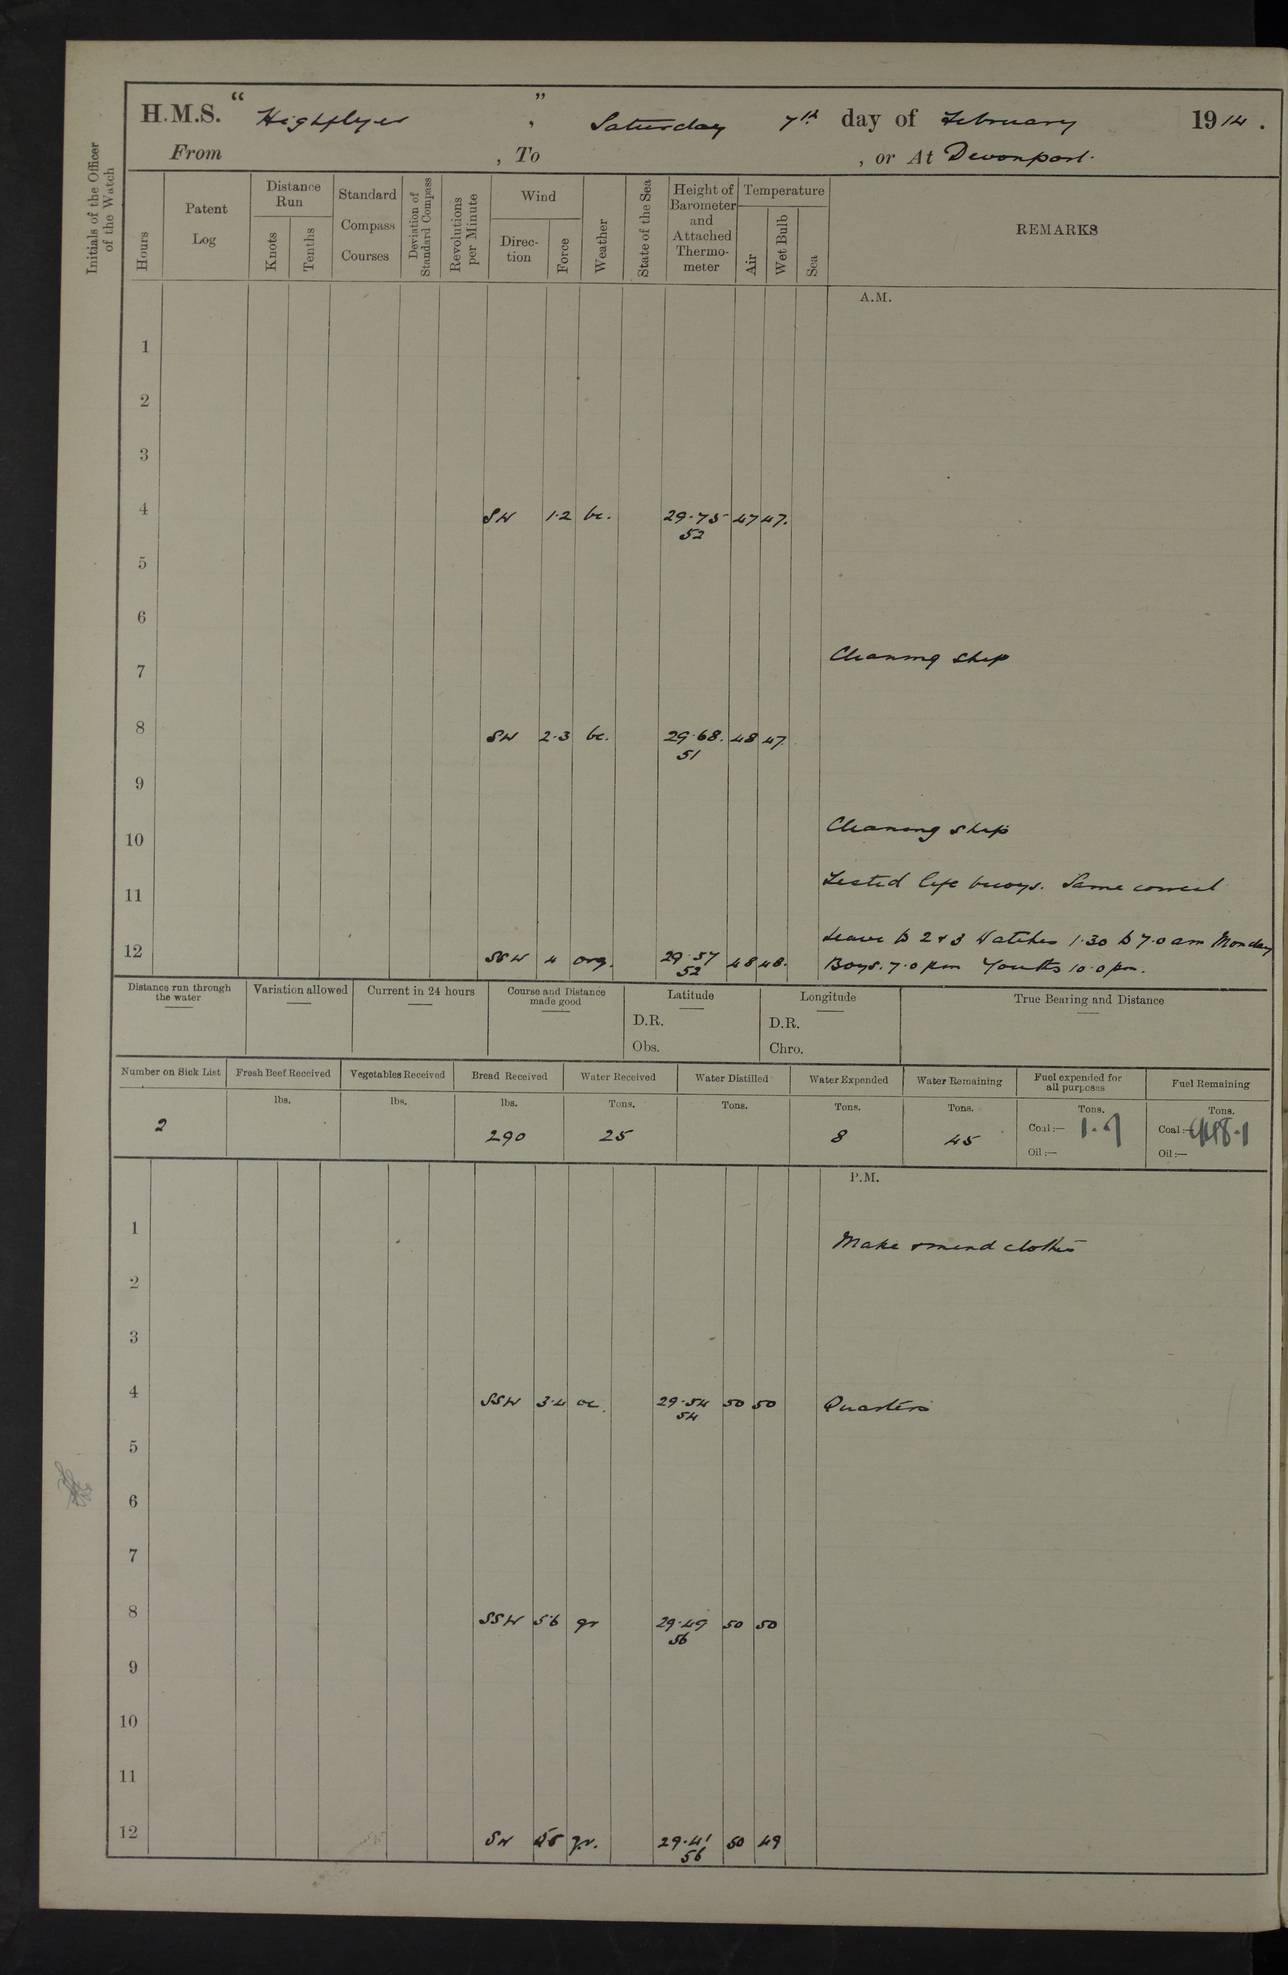 H.M.S. " Highflyer ", Saturday 7th day of February 1914.
From , To , or At Devonport.
Initials of the Officer of the Watch
Hours
Patent Log
Distance Run
Knots
Tenths
Standard Compass Courses
Deviation of Standard Compass
Revolutions per Minute
Wind
Direction
Force
Weather
State of the Sea
Height of Barometer and Attached Thermometer
Temperature
Air
Wet Bulb
Sea
REMARKS
A.M.
1
2
3
4 SW 1.2 bc. 29.75 47 47.
52
5
6
7 Cleaning Ship
8 SW 2.3 bc. 29.68. 48 47
51
9
10 Cleaning Ship
11 Tested life buoys. Same correct
Leave to 2 & 3 Watches 1.30 to 7.0 am Monday
12 SSW 4 org. 29.57 48 48. Boys. 7.0 pm Youths 10.0 pm.
52
Distance run through the water
Variation allowed
Current in 24 hours
Course and Distance made good
Latitude
D.R.
Obs.
Longitude
D.R.
Chro.
True Bearing and Distance
Number on Sick List
Fresh Beef Received
Vegetables Received
Bread Received
Water Received
Water Distilled
Water Expended
Water Remaining
Fuel expended for all purposes
Fuel Remaining
lbs. lbs. lbs. Tons. Tons. Tons. Tons. Tons. Tons.
2 290 25 8 45 Coal:— Coal:—
Oil:— Oil:—
P.M.
1 Make & mend clothes
2
3
4 SSW 3.4 oc. 29.54 50 50 Quarters
54
5
6
7
8 SSW 5.6 qr 29.49 50 50
56
9
10
11
12 SW qr. 29.41 50 49
56